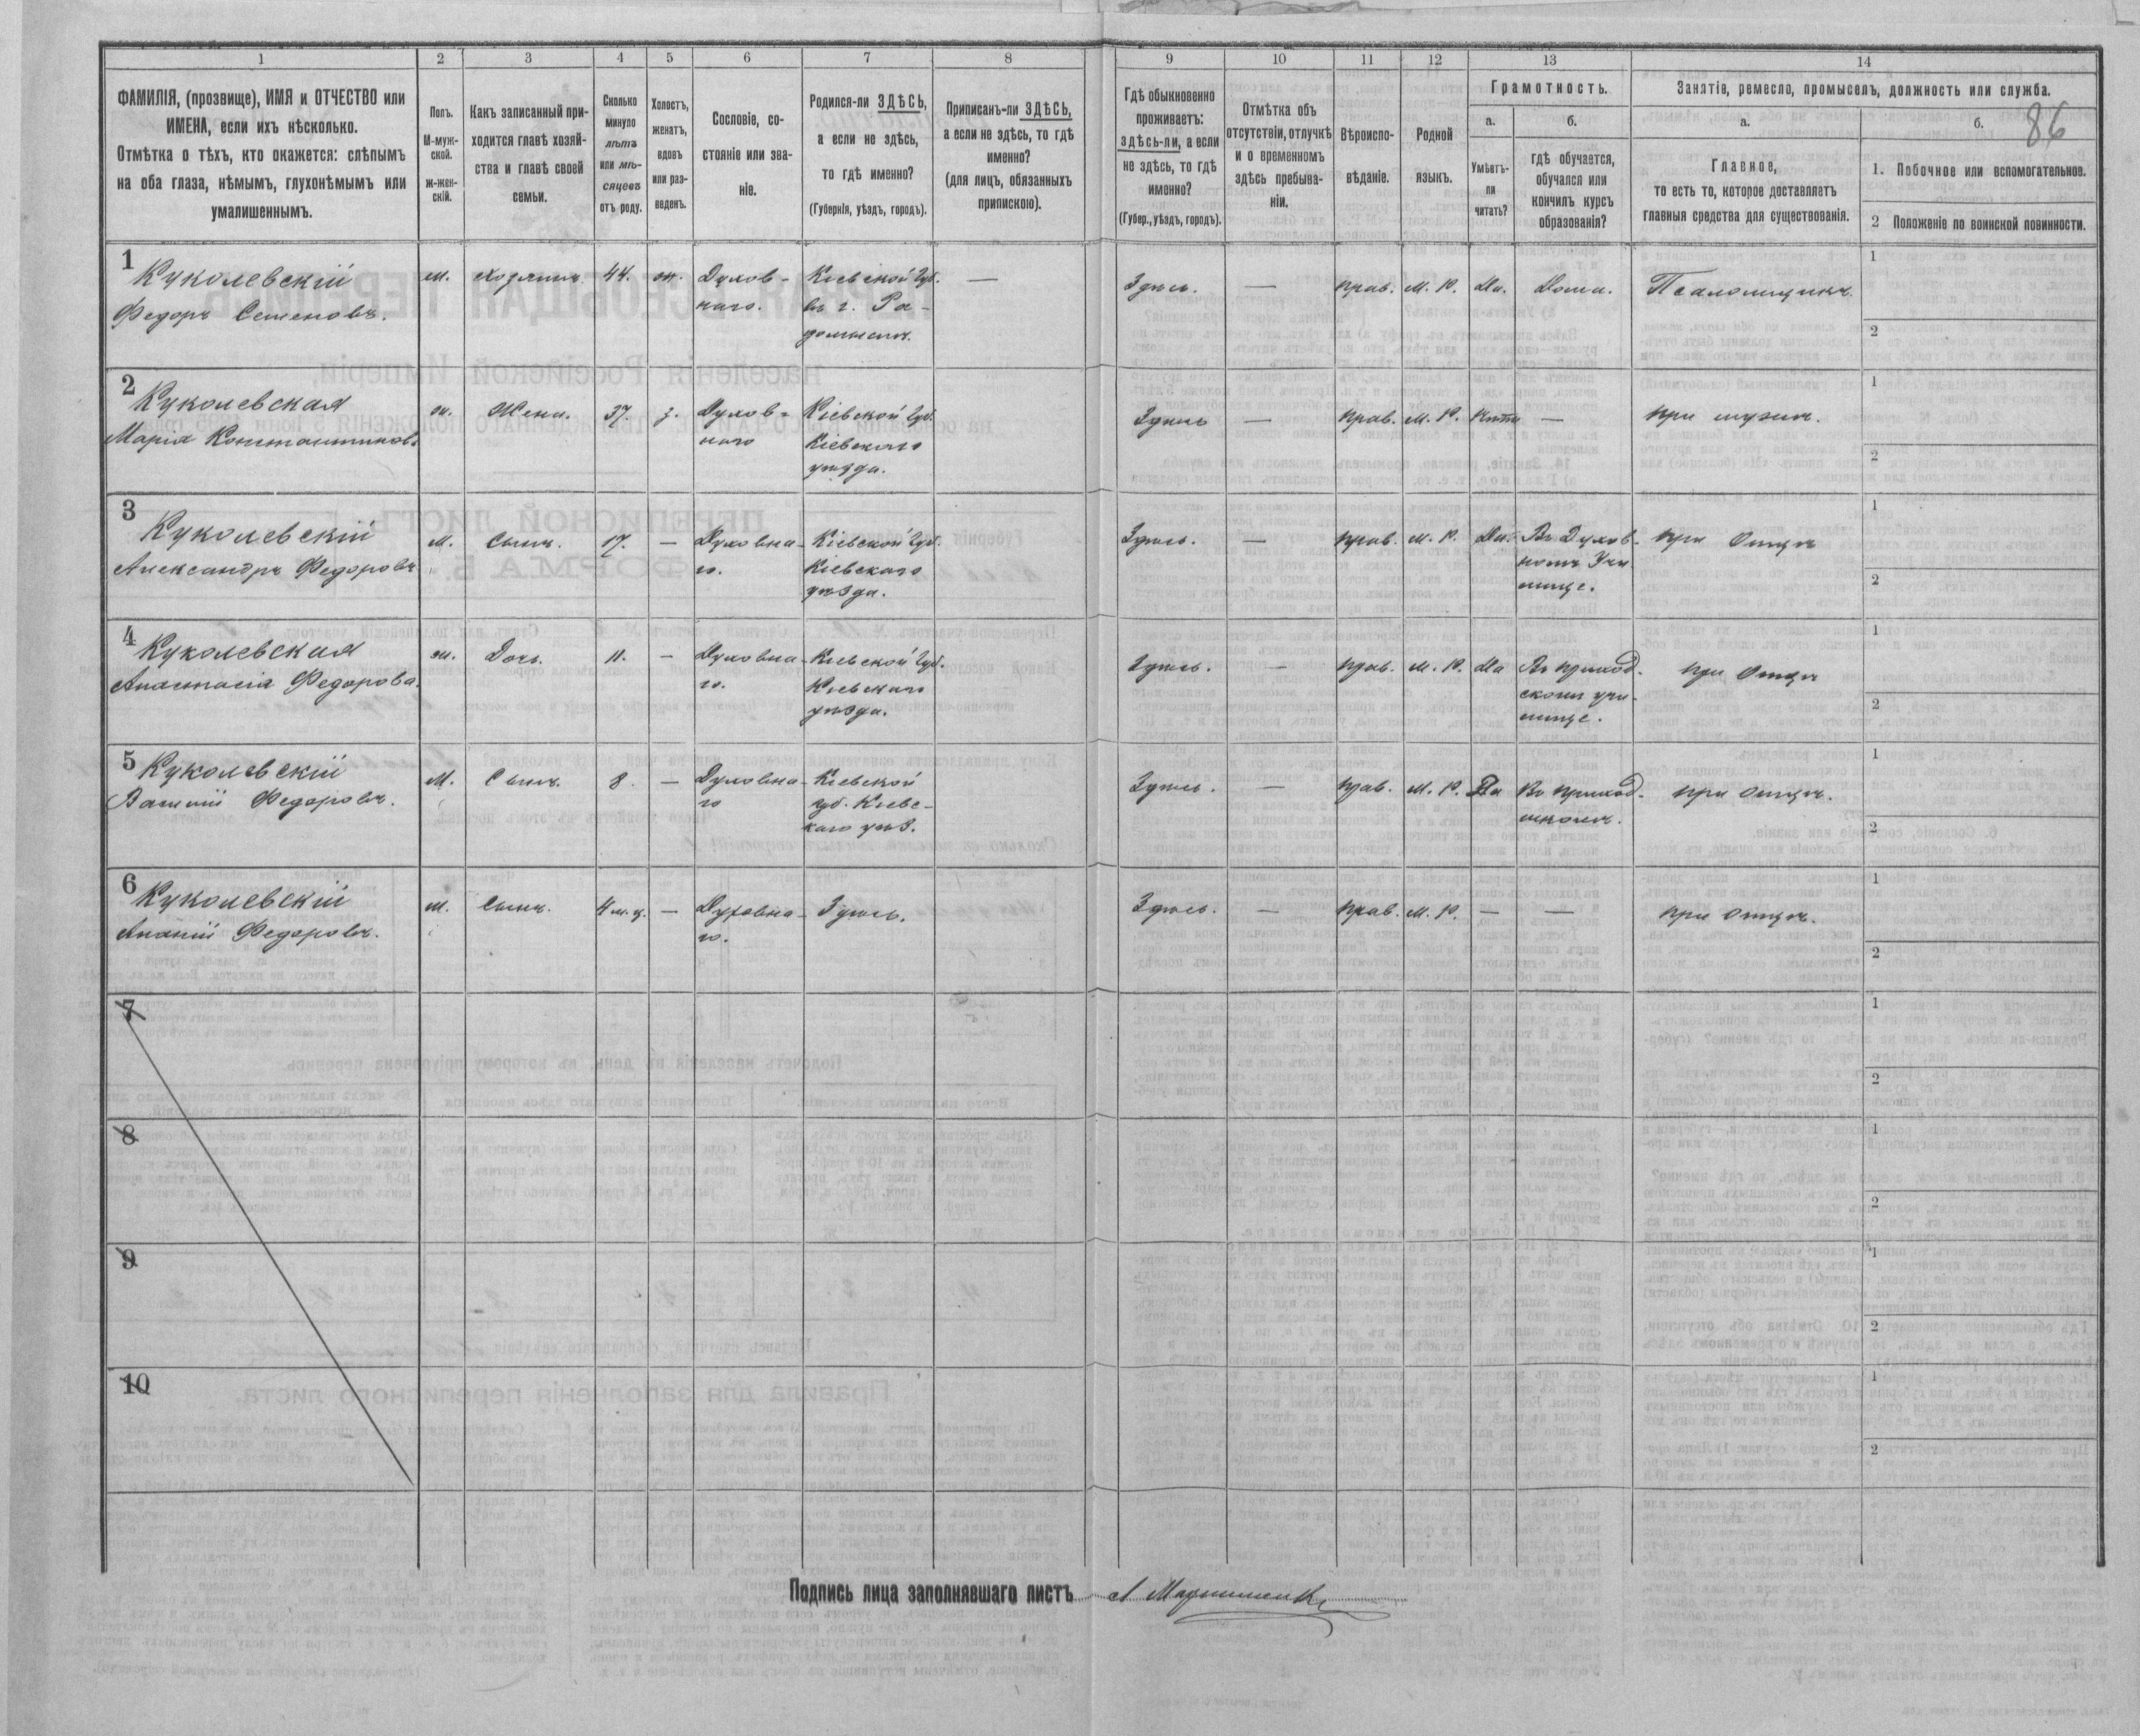 86
1 2 3 4 5 6 7 8 9 10 11 12 13 14
ФАМИЛІЯ, (прозвище), ИМЯ и ОТЧЕСТВО или
ИМЕНА, если ихъ нѣсколько.
Отмѣтка о тѣхъ, кто окажется: слѣпымъ
на оба глаза, нѣмымъ, глухонѣмымъ или
умалишеннымъ.
Полъ.
М-муж-
ской.
ж-жен-
скій.
Какъ записанный при-
ходится главѣ хозяй-
ства и главѣ своей
семьи.
Сколько
минуло
лѣтъ
или мѣ-
сяцевъ
отъ роду.
Холостъ,
женатъ,
вдовъ
или раз-
веденъ.
Сословіе, со-
стояніе или зва-
ніе.
Родился-ли ЗДѢСЬ,
а если не здѣсь,
то гдѣ именно?
(Губернія, уѣздъ, городъ).
Приписанъ-ли ЗДѢСЬ,
а если не здѣсь, то гдѣ
именно?
(для лицъ, обязанныхъ
припискою).
Гдѣ обыкновенно
проживаетъ:
здѣсь-ли, а если
не здѣсь, то гдѣ
именно?
(Губер., уѣздъ, городъ).
Отмѣтка объ
отсутствіи, отлучкѣ
и о временномъ
здѣсь пребыва-
ніи.
Вѣроиспо-
вѣданіе.
Родной
языкъ.
Грамотность.
а.
Умѣетъ-
ли
читать?
б.
гдѣ обучается,
обучался или
кончилъ курсъ
образованія?
Занятіе, ремесло, промыселъ, должность или служба.
а.
Главное,
то есть то, которое доставляетъ
главныя средства для существованія.
б.
1. Побочное или вспомогательное.
2 Положеніе по воинской повинности.
1 Куколевскій
Федоръ Семеновъ.
м. хозяинъ 44. ж. Духов-
наго.
Кіевской Губ.
въ г. Ра-
домыслѣ.
— Здѣсь. — прав. М. Р. Да. Дома. Псаломщикъ.
1
2
2 Куколевская
Марія Константинова
ж. Жена. 37. з. Духов-
наго
Кіевской Губ.
Кіевскаго
уѣзда.
Здѣсь — прав. М. Р. Нѣтъ — при мужѣ.
1
2
3 Куколевскій
Александръ Федоровъ
м. Сынъ. 17. — Духовна-
го.
Кіевской Губ.
Кіевскаго
уѣзда.
Здѣсь. — прав. М. Р. Да. Въ Духов-
номъ Учи
лище.
при Отцѣ
1
2
4 Куколевская
Анастасія Федорова.
ж. Дочь. 11. — Духовна-
го.
Кіевской Губ.
Кіевскаго
уѣзда.
Здѣсь. — прав. М. Р. Да Въ приход-
скомъ учи-
лище.
при Отцѣ
1
2
5 Куколевскій
Василій Федоровъ.
М. Сынъ. 8. — Духовна-
го
Кіевской
губ. Кіевс-
каго уѣз.
Здѣсь. — прав. М. Р. Да Въ приход-
школѣ.
при Отцѣ.
1
2
6 Куколевскій
Ананій Федоровъ.
м. Сынъ. 4 м.ц. — Духовна-
го.
Здѣсь.
Здѣсь. — прав. М. Р. — — при Отцѣ.
1
2
7
1
2
8
1
2
9
1
2
10
1
2
Подпись лица заполнявшаго листъ